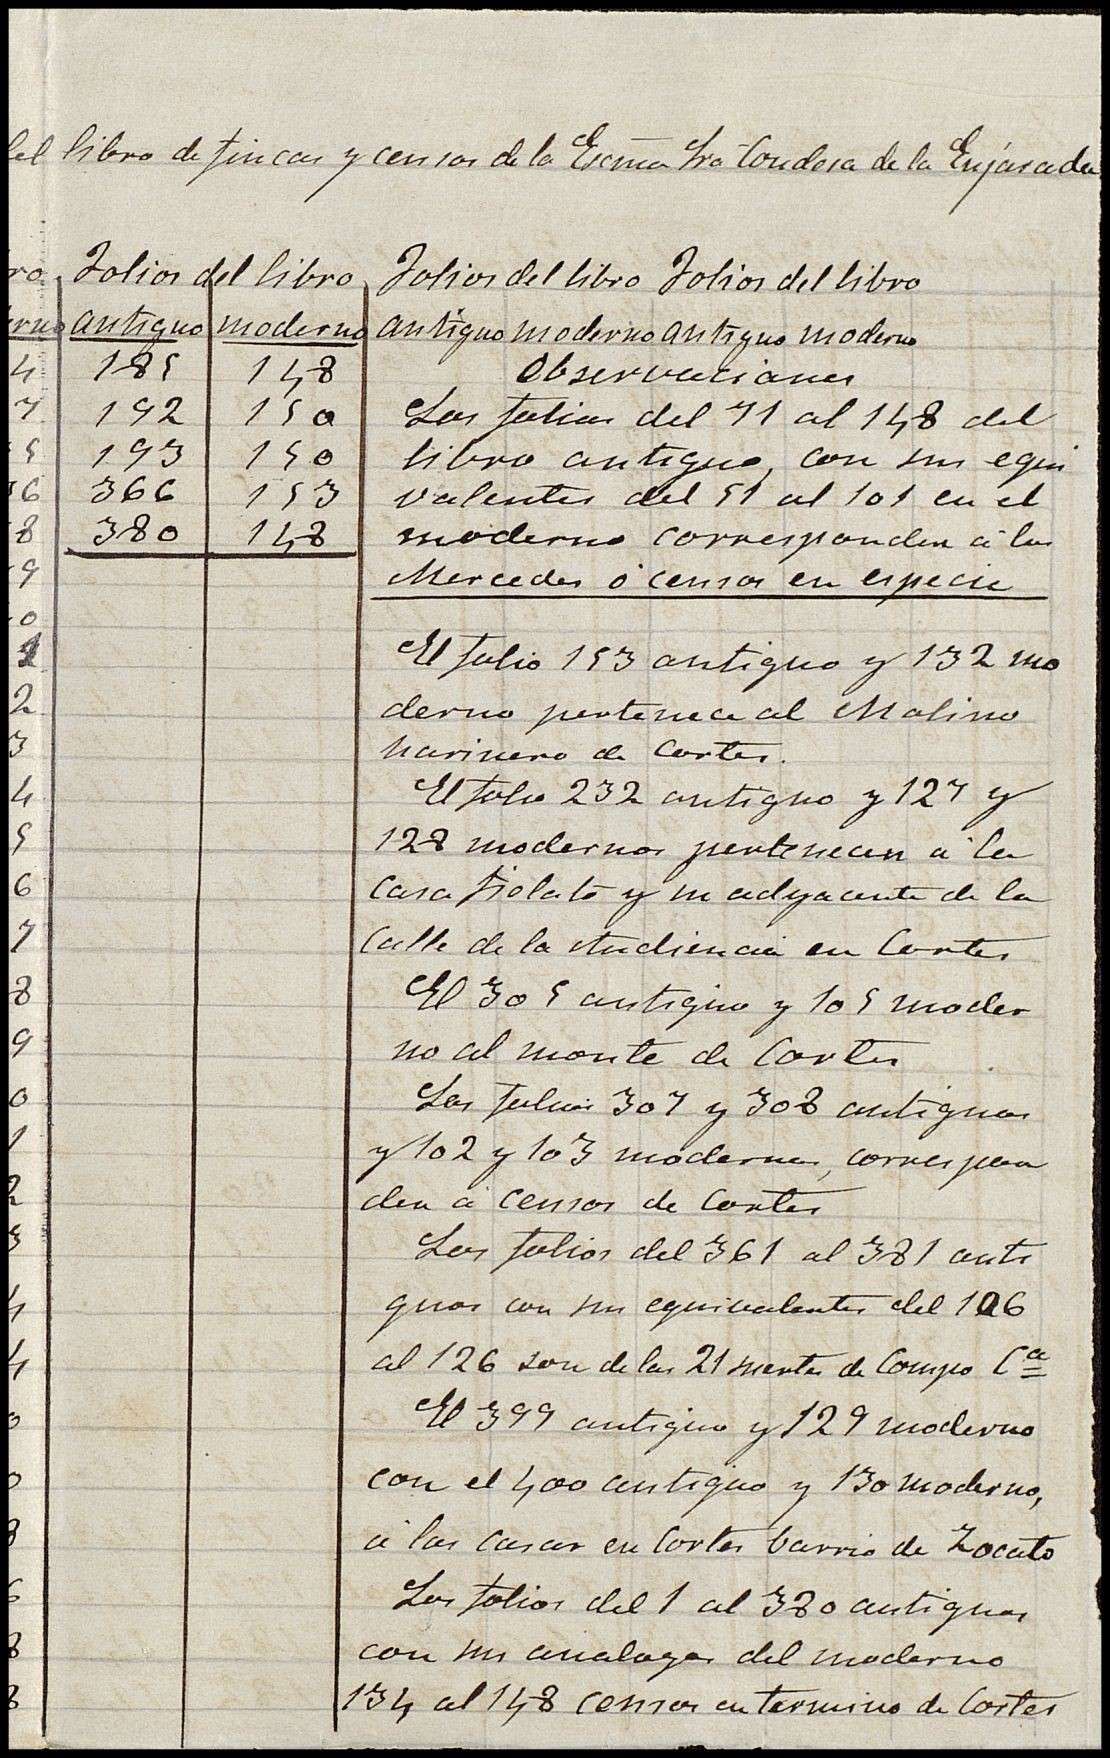 del libro de fincas y censos de la Excma Sra Condesa de la Enjarada
ro Folios del libro Folios del libro Folios del libro
erno antiguo moderno antiguo moderno antiguo moderno
4 185 148 Observaciones
7 192 150 Los folios del 71 al 148 del
5 193 150 libro antiguo, con sus equi
36 366 153 valentes del 51 al 101 en el
8 380 148 moderno corresponden á las
9 Mercedes ó censos en especie
0
1 El folio 153 antiguo y 132 mo
2 derno pertenece al Molino
3 harinero de Cortes.
4 El folio 232 antiguo y 127 y
5 128 modernos pertenecen á la
6 casa y su adyacente de la
7 Calle de la Audiencia en Cortes
8 El 305 antiguo y 105 moder
9 no al monte de Cortes
0 Los folios 307 y 308 antiguos
1 y 102 y 103 modernos, correspon
2 den á censos de Cortes
3 Los folios del 361 al 381 anti
4 guos con sus equivalentes del 106
4 al 126 son de las 21 suertes de Campo Cª
0 El 399 antiguo y 129 moderno
0 con el 400 antiguo y 130 moderno,
8 á las casas en Cortes barrio de Zocato
6 Los folios del 1 al 380 antiguos
8 con sus analogos del moderno
8 134 al 148 censos en termino de Cortes